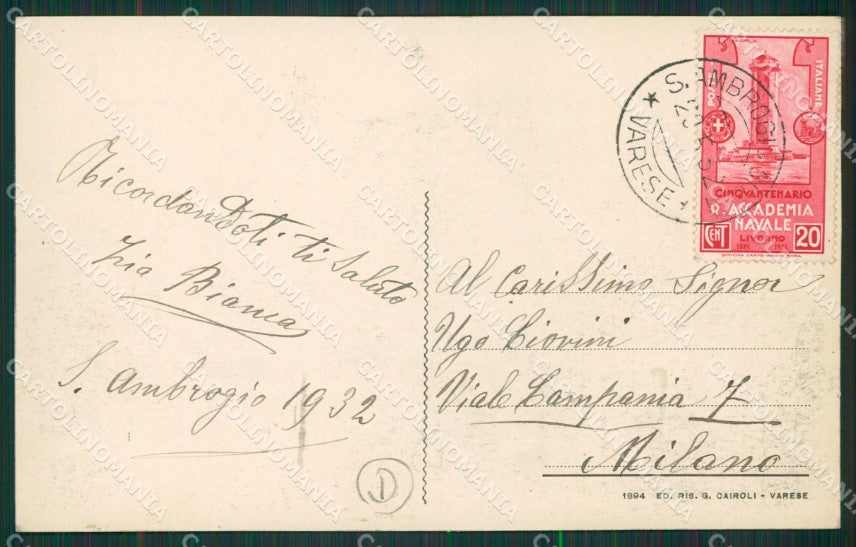 Ricordandoti ti saluto
Zia Bianca
S. Ambrogio 1932
S. AMBROGIO
VARESE
POSTE ITALIANE
CINQVANTENARIO
R. ACCADEMIA
NAVALE
LIVORNO
1881 1931
CENT 20
Al Carissimo Signor
Ugo Giovini
Viale Campania 7
Milano
1894 ED. RIS. G. CAIROLI - VARESE
D
CARTOLINOMANIA